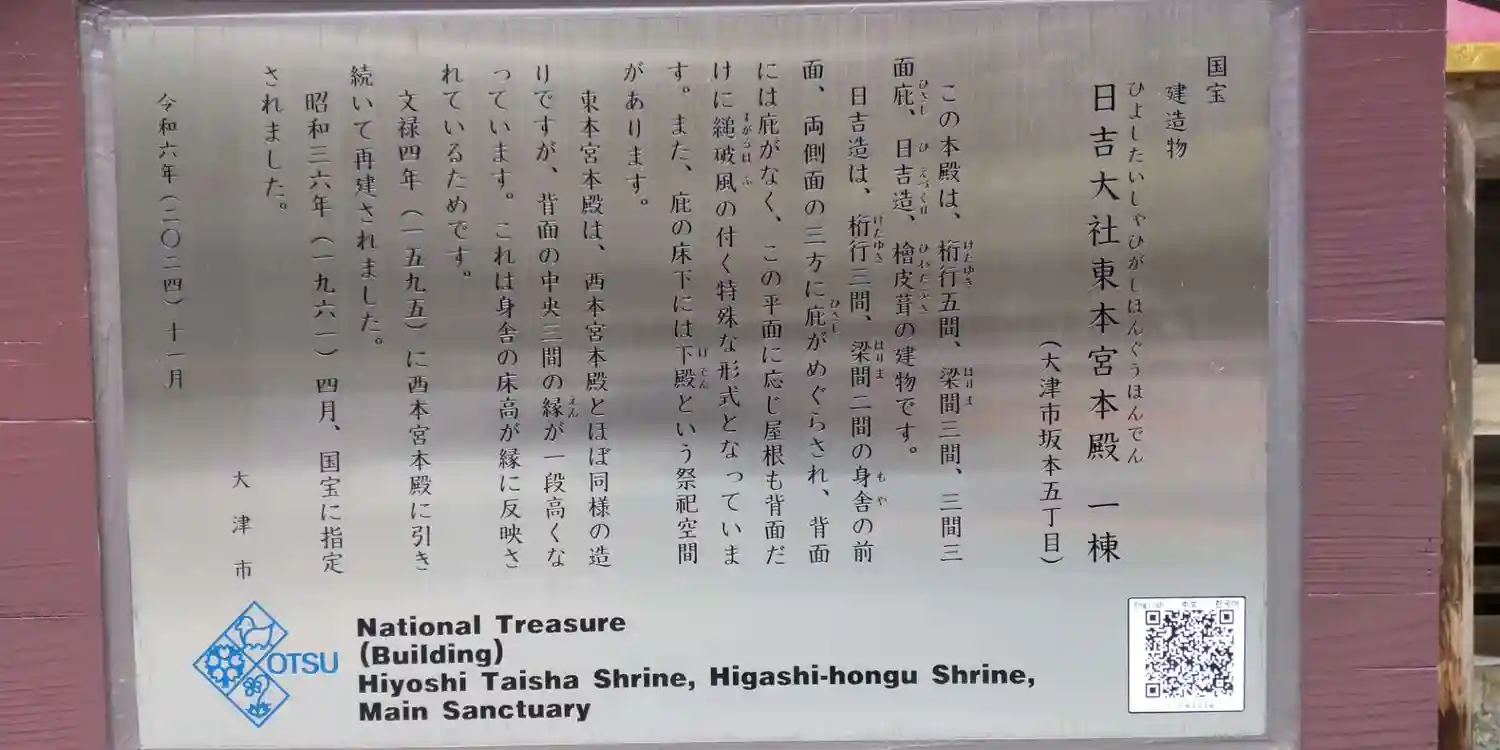 国宝
建造物
ひよしたいしゃひがしほんぐうほんでん
日吉大社東本宮本殿 一棟
(大津市坂本五丁目)
この本殿は、桁行五間、梁間三間、三間三
面庇、日吉造、檜皮葺の建物です。
日吉造は、桁行三間、梁間二間の身舎の前
面、両側面の三方に庇がめぐらされ、背面
には庇がなく、この平面に応じ屋根も背面だ
けに縋破風の付く特殊な形式となっていま
す。また、庇の床下には下殿という祭祀空間
があります。
東本宮本殿は、西本宮本殿とほぼ同様の造
りですが、背面の中央三間の縁が一段高くな
っています。これは身舎の床高が縁に反映さ
れているためです。
文禄四年(一五九五)に西本宮本殿に引き
続いて再建されました。
昭和三六年(一九六一)四月、国宝に指定
されました。
大津市
令和六年(二〇二四)十一月
OTSU
National Treasure
(Building)
Hiyoshi Taisha Shrine, Higashi-hongu Shrine,
Main Sanctuary
English 中文 한국어